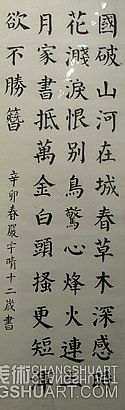 國破山河在城春草木深感時
花濺淚恨别鳥驚心烽火連三
月家書抵萬金白頭搔更短渾
欲不勝簪
辛卯春嚴宇晴十二歲書